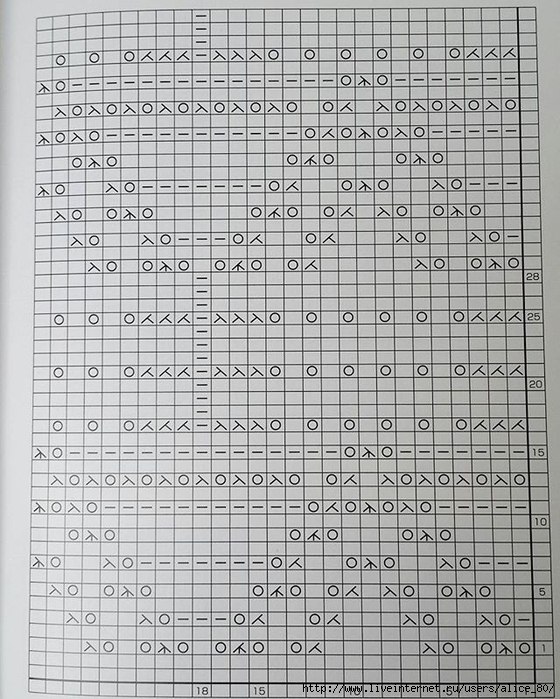 28
25
20
15
10
5
1
18 15
http://www.liveinternet.ru/users/alice_80/